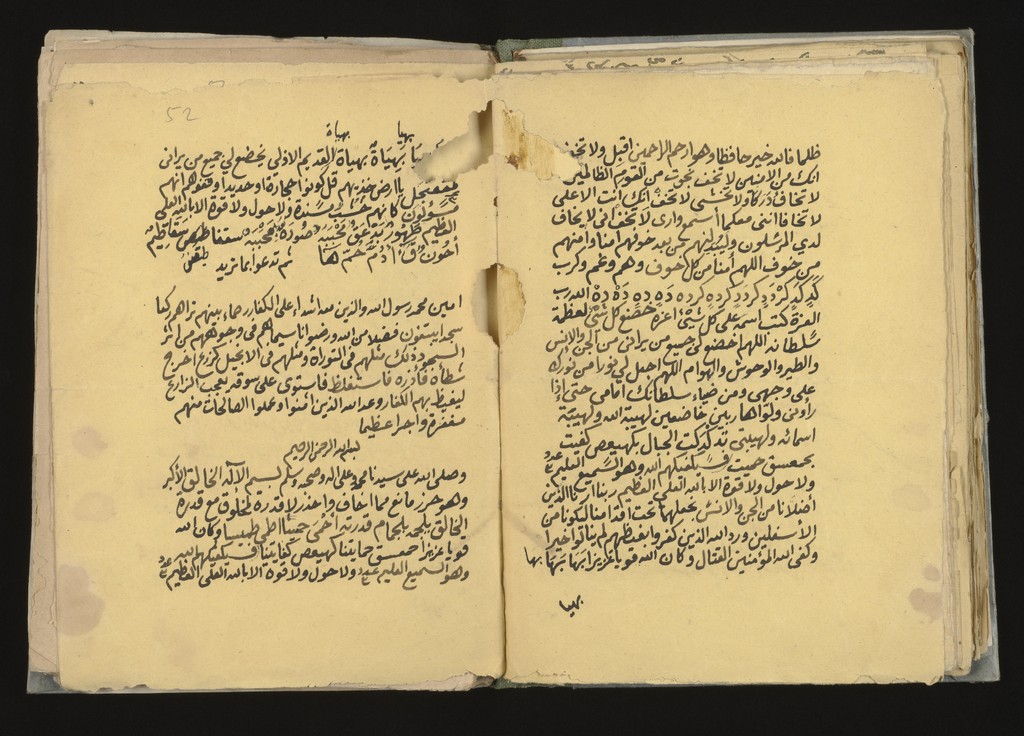 ظلما فالله خير حافظا وهو ارحم الراحمين اقبل ولا تخف
انك من الامنين لا تخف نجوت من القوم الظالمين
لا تخاف دركا ولا تخشى لا تخف انك انت الاعلى
لا تخافا اننى معكما اسمع وارى لا تخف انى لا يخاف
لدي المرسلون وليبدلنهم من بعد خوفهم امنا وامنهم
من خوف اللهم أمنا من كل خوف وهم وغم وكرب
كد كد كردد كردد كرده كرده ده ده ده ده الله رب
العزة كتب اسمه على كل شئ اعزه خضع كل شئ لعظمة
سلطانه اللهم اخضع لى جميع من يرانى من الجن والانس
والطير والوحوش والهوام اللهم اجعل لى نورا من نورك
على وجهى ومن ضياء سلطانك امامى حتى إذا
رأونى ولوا هاربين خاضعين لهيبة الله ولهيبة
اسمائه ولهيبتى تدكدكت الجبال بكهيعص كفيت
بحمعسق حميت فسيكفيكهم الله وهو السميع العليم
ولا حول ولا قوة الا بالله العلى العظيم ربنا ارنا الذين
أضلانا من الجن والانس نجعلهما تحت أقدامنا ليكونا من
الأسفلين ورد الله الذين كفروا بغيظهم لم ينالوا خيرا
وكفى الله المؤمنين القتال وكان الله قويا عزيزا بها بها بها
بهيا
52
بهيا بهياة
بهياة القديم الازلى يخضع لى جميع من يرانى
يا ارض خذيهم قل كونوا حجارة او حديدا وقفوهم انهم
مسؤلون كانهم خشب مسندة ولا حول ولا قوة الا بالله العلى
العظيم
ثم تدعوا بما تريد
امين محمد رسول الله والذين معه اشداء على الكفار رحماء بينهم تراهم ركعا
سجدا يبتغون فضلا من الله ورضوانا سيماهم فى وجوههم من اثر
السجود ذلك مثلهم فى التوراة ومثلهم فى الانجيل كزرع اخرج
شطأه فآزره فاستغلظ فاستوى على سوقه يعجب الزراع
ليغيظ بهم الكفار وعد الله الذين امنوا وعملوا الصالحات منهم
مغفرة واجرا عظيما
بسم الله الرحمن الرحيم
وصلى الله على سيدنا محمد وعلى اله وصحبه وسلم بسم الآله الخالق الأكبر
وهو حرز مانع مما اخاف واحذر لا قدرة لمخلوق مع قدرة
الخالق يلجمه بلجام قدرته أحمى حميثا اطمى طميثا وكان الله
قويا عزيزا حمعسق حمايتنا كهيعص كفايتنا فسيكفيكهم الله
وهو السميع العليم ولا حول ولا قوة الا بالله العلى العظيم